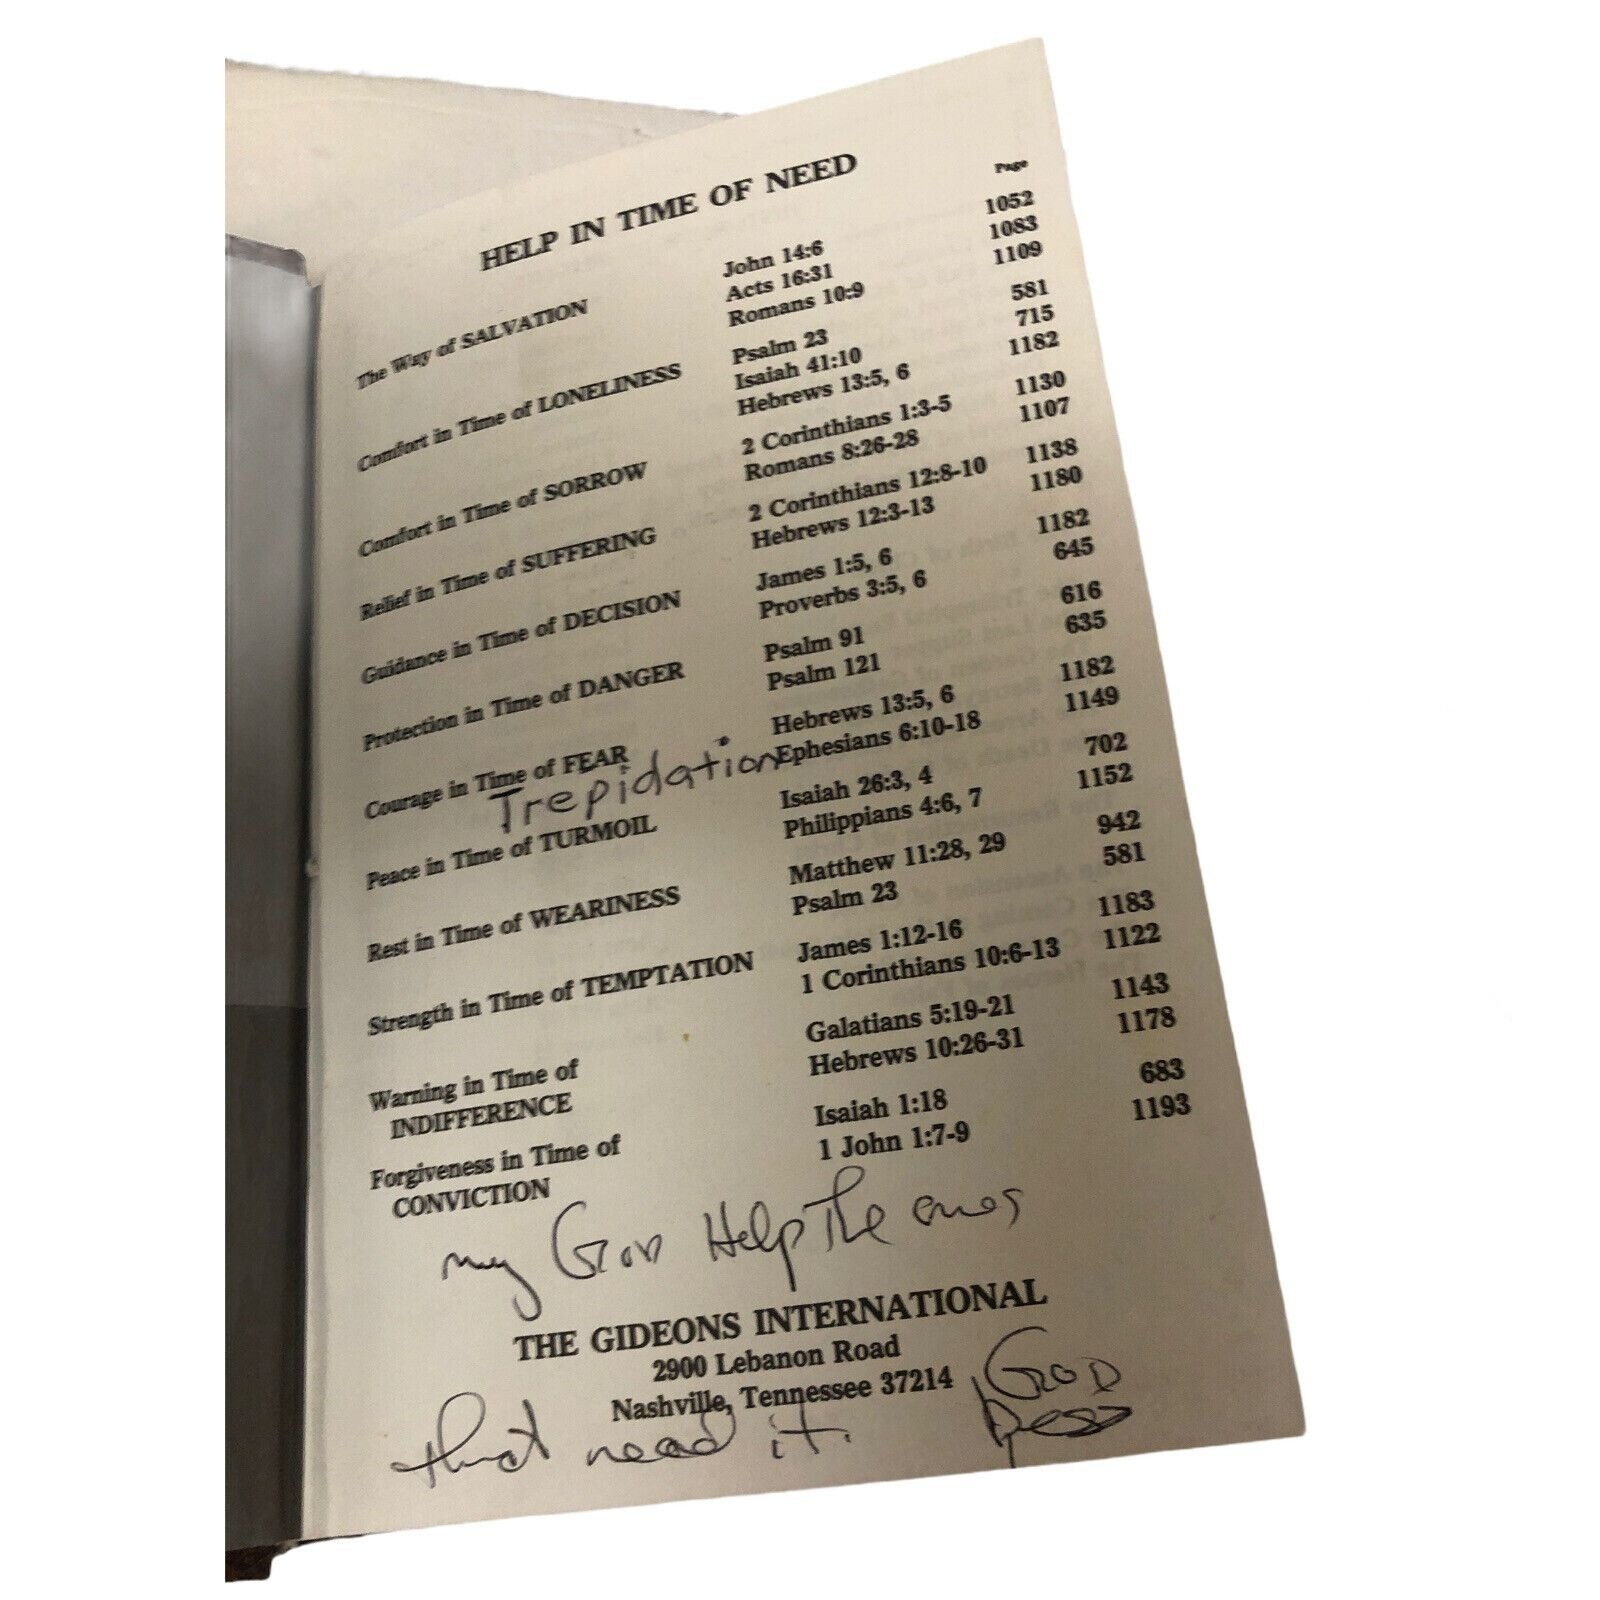 HELP IN TIME OF NEED
Page
The Way of SALVATION John 14:6 1052
Acts 16:31 1083
Romans 10:9 1109
Comfort in Time of LONELINESS Psalm 23 581
Isaiah 41:10 715
Hebrews 13:5, 6 1182
Comfort in Time of SORROW 2 Corinthians 1:3-5 1130
Romans 8:26-28 1107
Relief in Time of SUFFERING 2 Corinthians 12:8-10 1138
Hebrews 12:3-13 1180
Guidance in Time of DECISION James 1:5, 6 1182
Proverbs 3:5, 6 645
Protection in Time of DANGER Psalm 91 616
Psalm 121 635
Courage in Time of FEAR Hebrews 13:5, 6 1182
Trepidation Ephesians 6:10-18 1149
Peace in Time of TURMOIL Isaiah 26:3, 4 702
Philippians 4:6, 7 1152
Rest in Time of WEARINESS Matthew 11:28, 29 942
Psalm 23 581
Strength in Time of TEMPTATION James 1:12-16 1183
1 Corinthians 10:6-13 1122
Warning in Time of Galatians 5:19-21 1143
INDIFFERENCE Hebrews 10:26-31 1178
Forgiveness in Time of Isaiah 1:18 683
CONVICTION 1 John 1:7-9 1193
my GOD Help The ones
THE GIDEONS INTERNATIONAL
2900 Lebanon Road
Nashville, Tennessee 37214
that need it. GOD